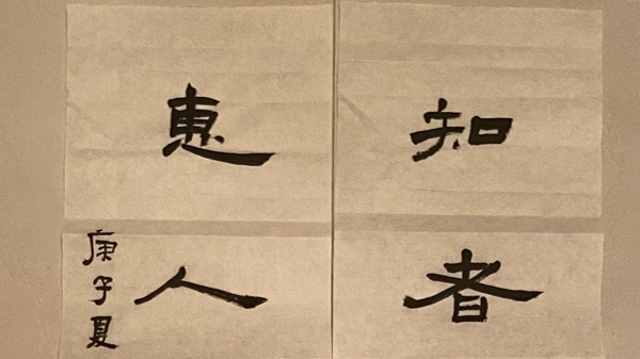 知者
惠人
庚子夏